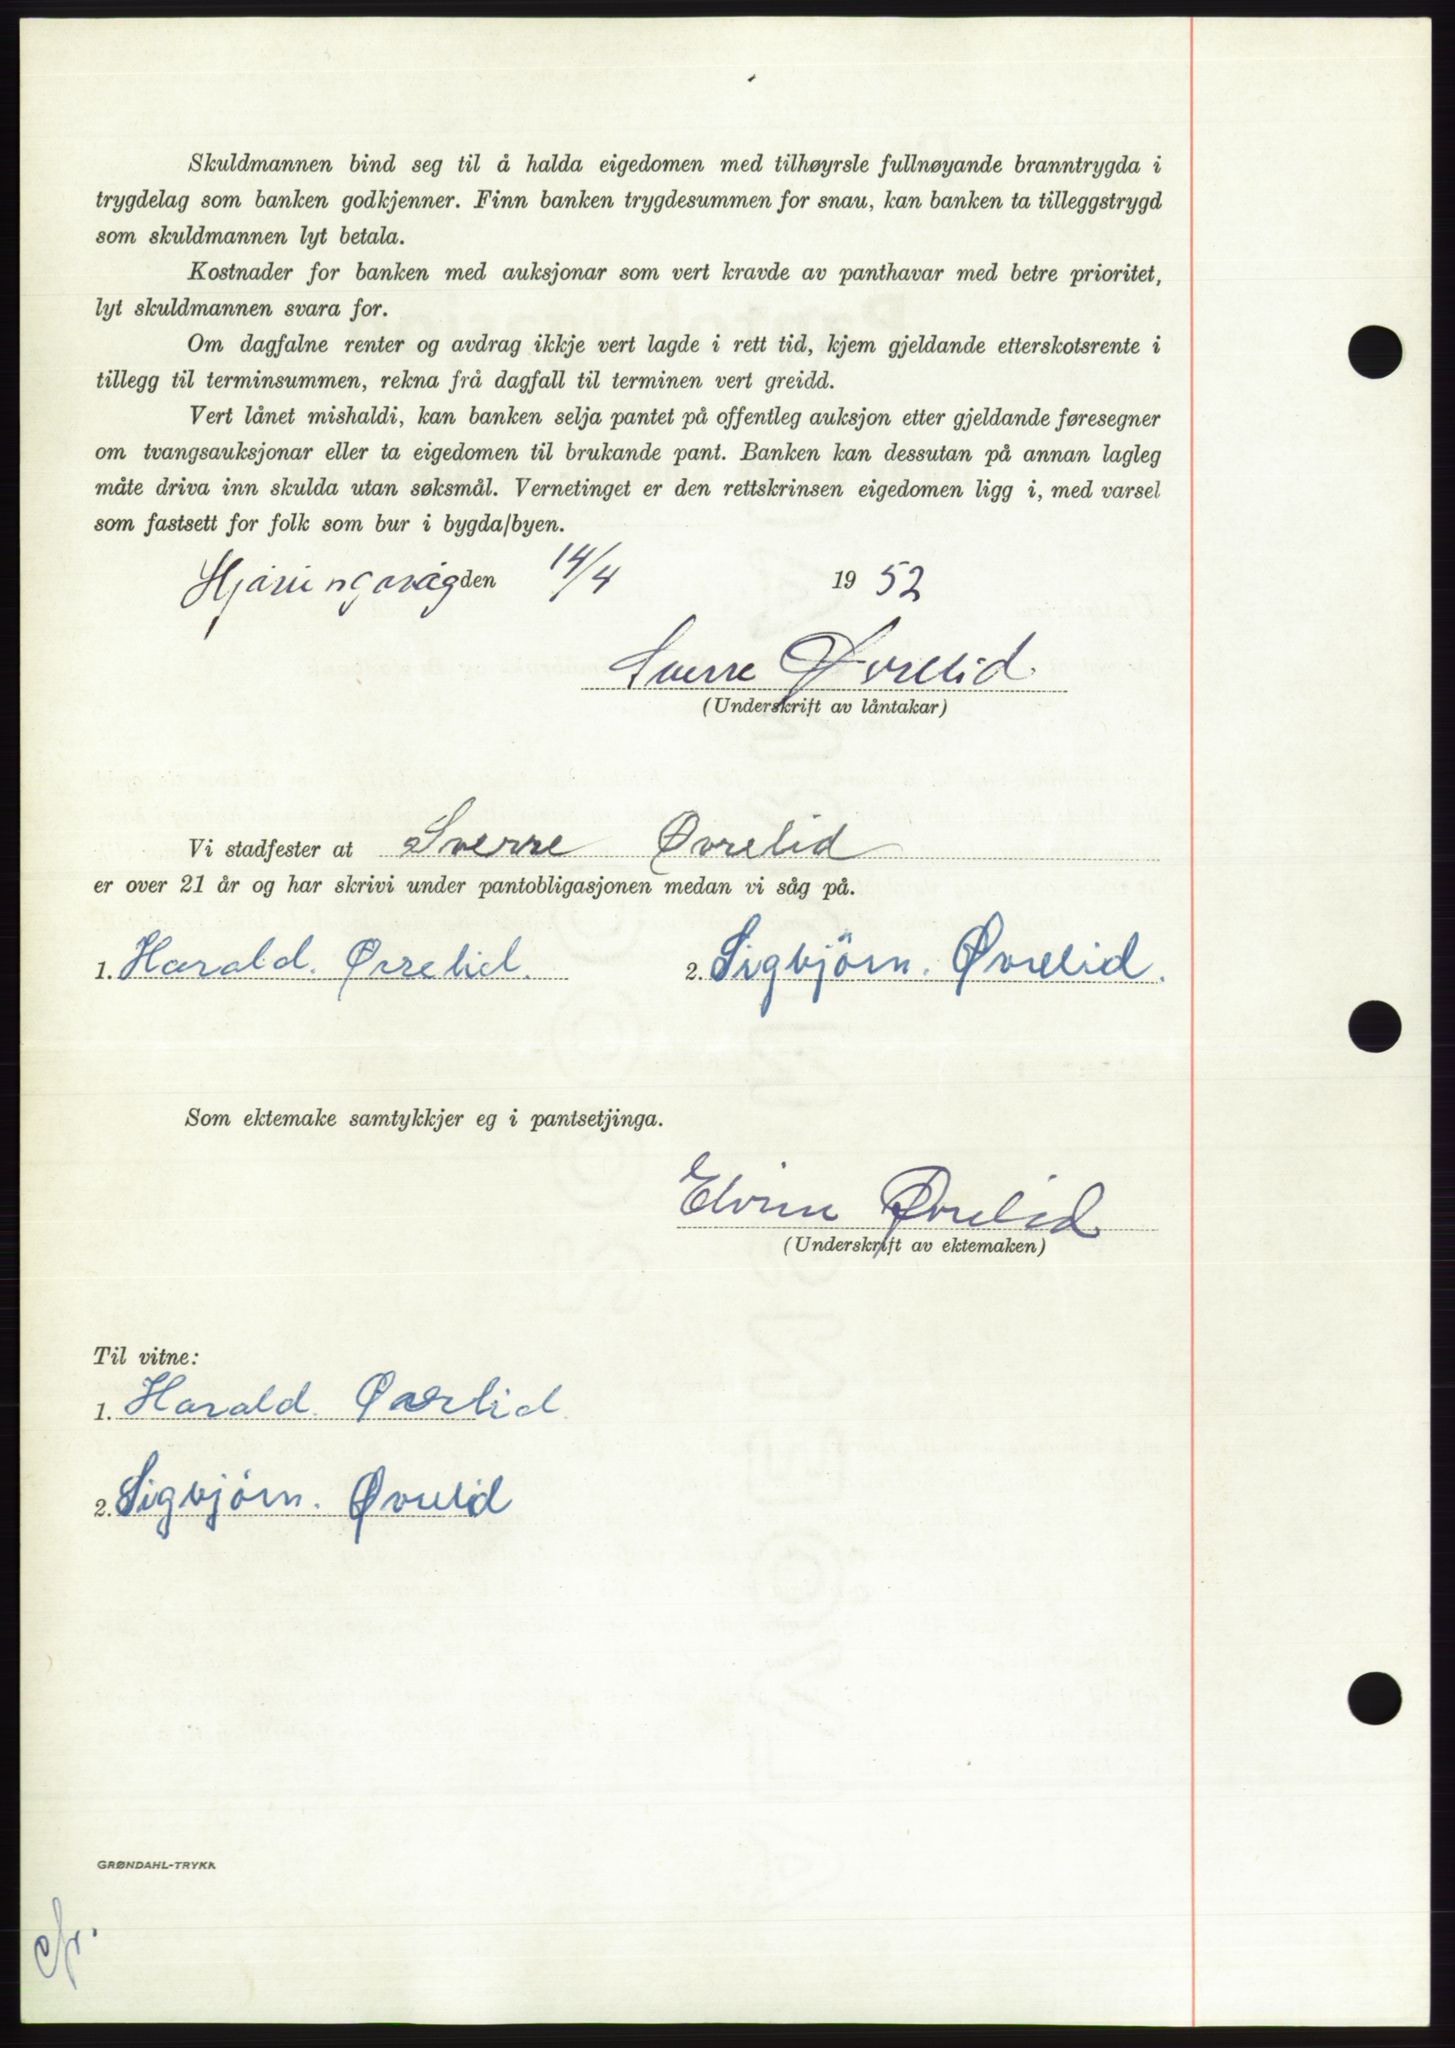 Skuldmannen bind seg til å halda eigedomen med tilhøyrsle fullnøyande branntrygda i
trygdelag som banken godkjenner. Finn banken trygdesummen for snau, kan banken ta tilleggstrygd
som skuldmannen lyt betala.
Kostnader for banken med auksjonar som vert kravde av panthavar med betre prioritet,
lyt skuldmannen svara for.
Om dagfalne renter og avdrag ikkje vert lagde i rett tid, kjem gjeldande etterskotsrente i
tillegg til terminsummen, rekna frå dagfall til terminen vert greidd.
Vert lånet mishaldi, kan banken selja pantet på offentleg auksjon etter gjeldande føresegner
om tvangsauksjonar eller ta eigedomen til brukande pant. Banken kan dessutan på annan lagleg
måte driva inn skulda utan søksmål. Vernetinget er den rettskrinsen eigedomen ligg i, med varsel
som fastsett for folk som bur i bygda/byen.
den 14/4 1952
Sverre Øvrelid
(Underskrift av låntakar)
Vi stadfester at Sverre Øvrelid
er over 21 år og har skrivi under pantobligasjonen medan vi såg på.
1. Harald. Øvrelid. 2. Sigbjörn. Øvrelid.
Som ektemake samtykkjer eg i pantsetjinga.
Øvrelid
(Underskrift av ektemaken)
Til vitne:
1. Harald. Øvrelid.
2. Sigbjörn. Øvrelid
GRØNDAHL-TRYKK